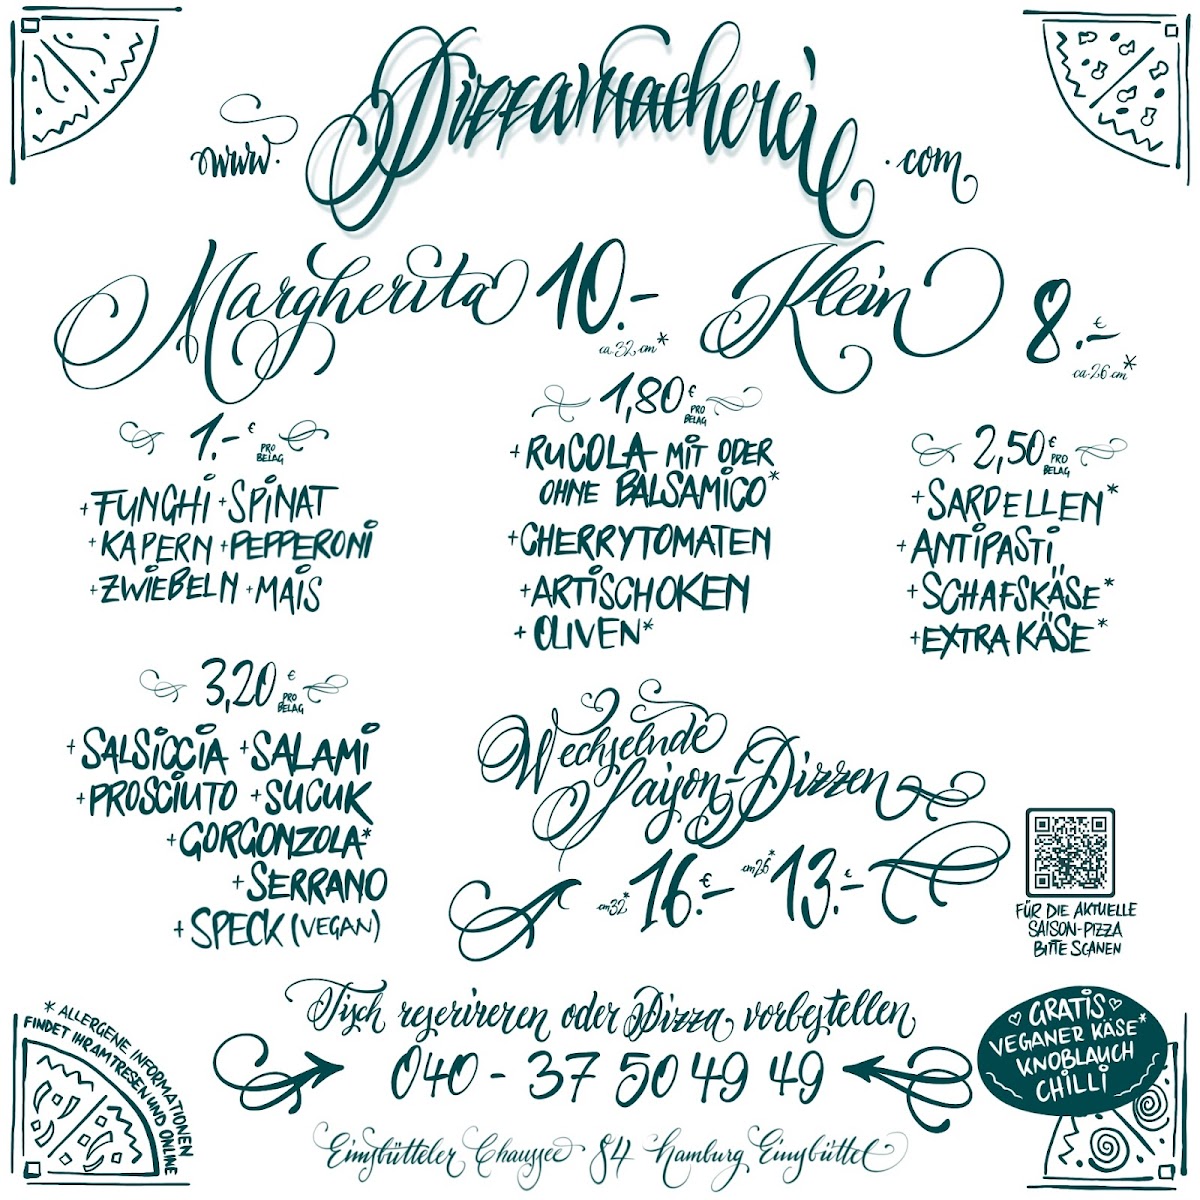 www. Pizzamacherei .com
Margherita 10.-
ca. 32 cm*
Klein 8.- €
ca. 26 cm*
1.- € PRO BELAG
+FUNGHI +SPINAT
+KAPERN +PEPPERONI
+ZWIEBELN +MAIS
1,80 € PRO BELAG
+RUCOLA MIT ODER
OHNE BALSAMICO*
+CHERRYTOMATEN
+ARTISCHOKEN
+OLIVEN*
2,50 € PRO BELAG
+SARDELLEN*
+ANTIPASTI
+SCHAFSKÄSE*
+EXTRA KÄSE*
3,20 € PRO BELAG
+SALSICCIA +SALAMI
+PROSCIUTO +SUCUK
+GORGONZOLA*
+SERRANO
+SPECK (VEGAN)
Wechselnde
Saison-Pizzen
cm32* 16.- € cm26* 13.- €
FÜR DIE AKTUELLE
SAISON-PIZZA
BITTE SCANEN
Tisch reserireren oder Pizza vorbestellen
040 - 37 50 49 49
Eimsbütteler Chaussee 84 Hamburg Eimsbüttel
* ALLERGENE INFORMATIONEN
FINDET IHR AM TRESEN UND ONLINE
GRATIS
VEGANER KÄSE*
KNOBLAUCH
CHILLI